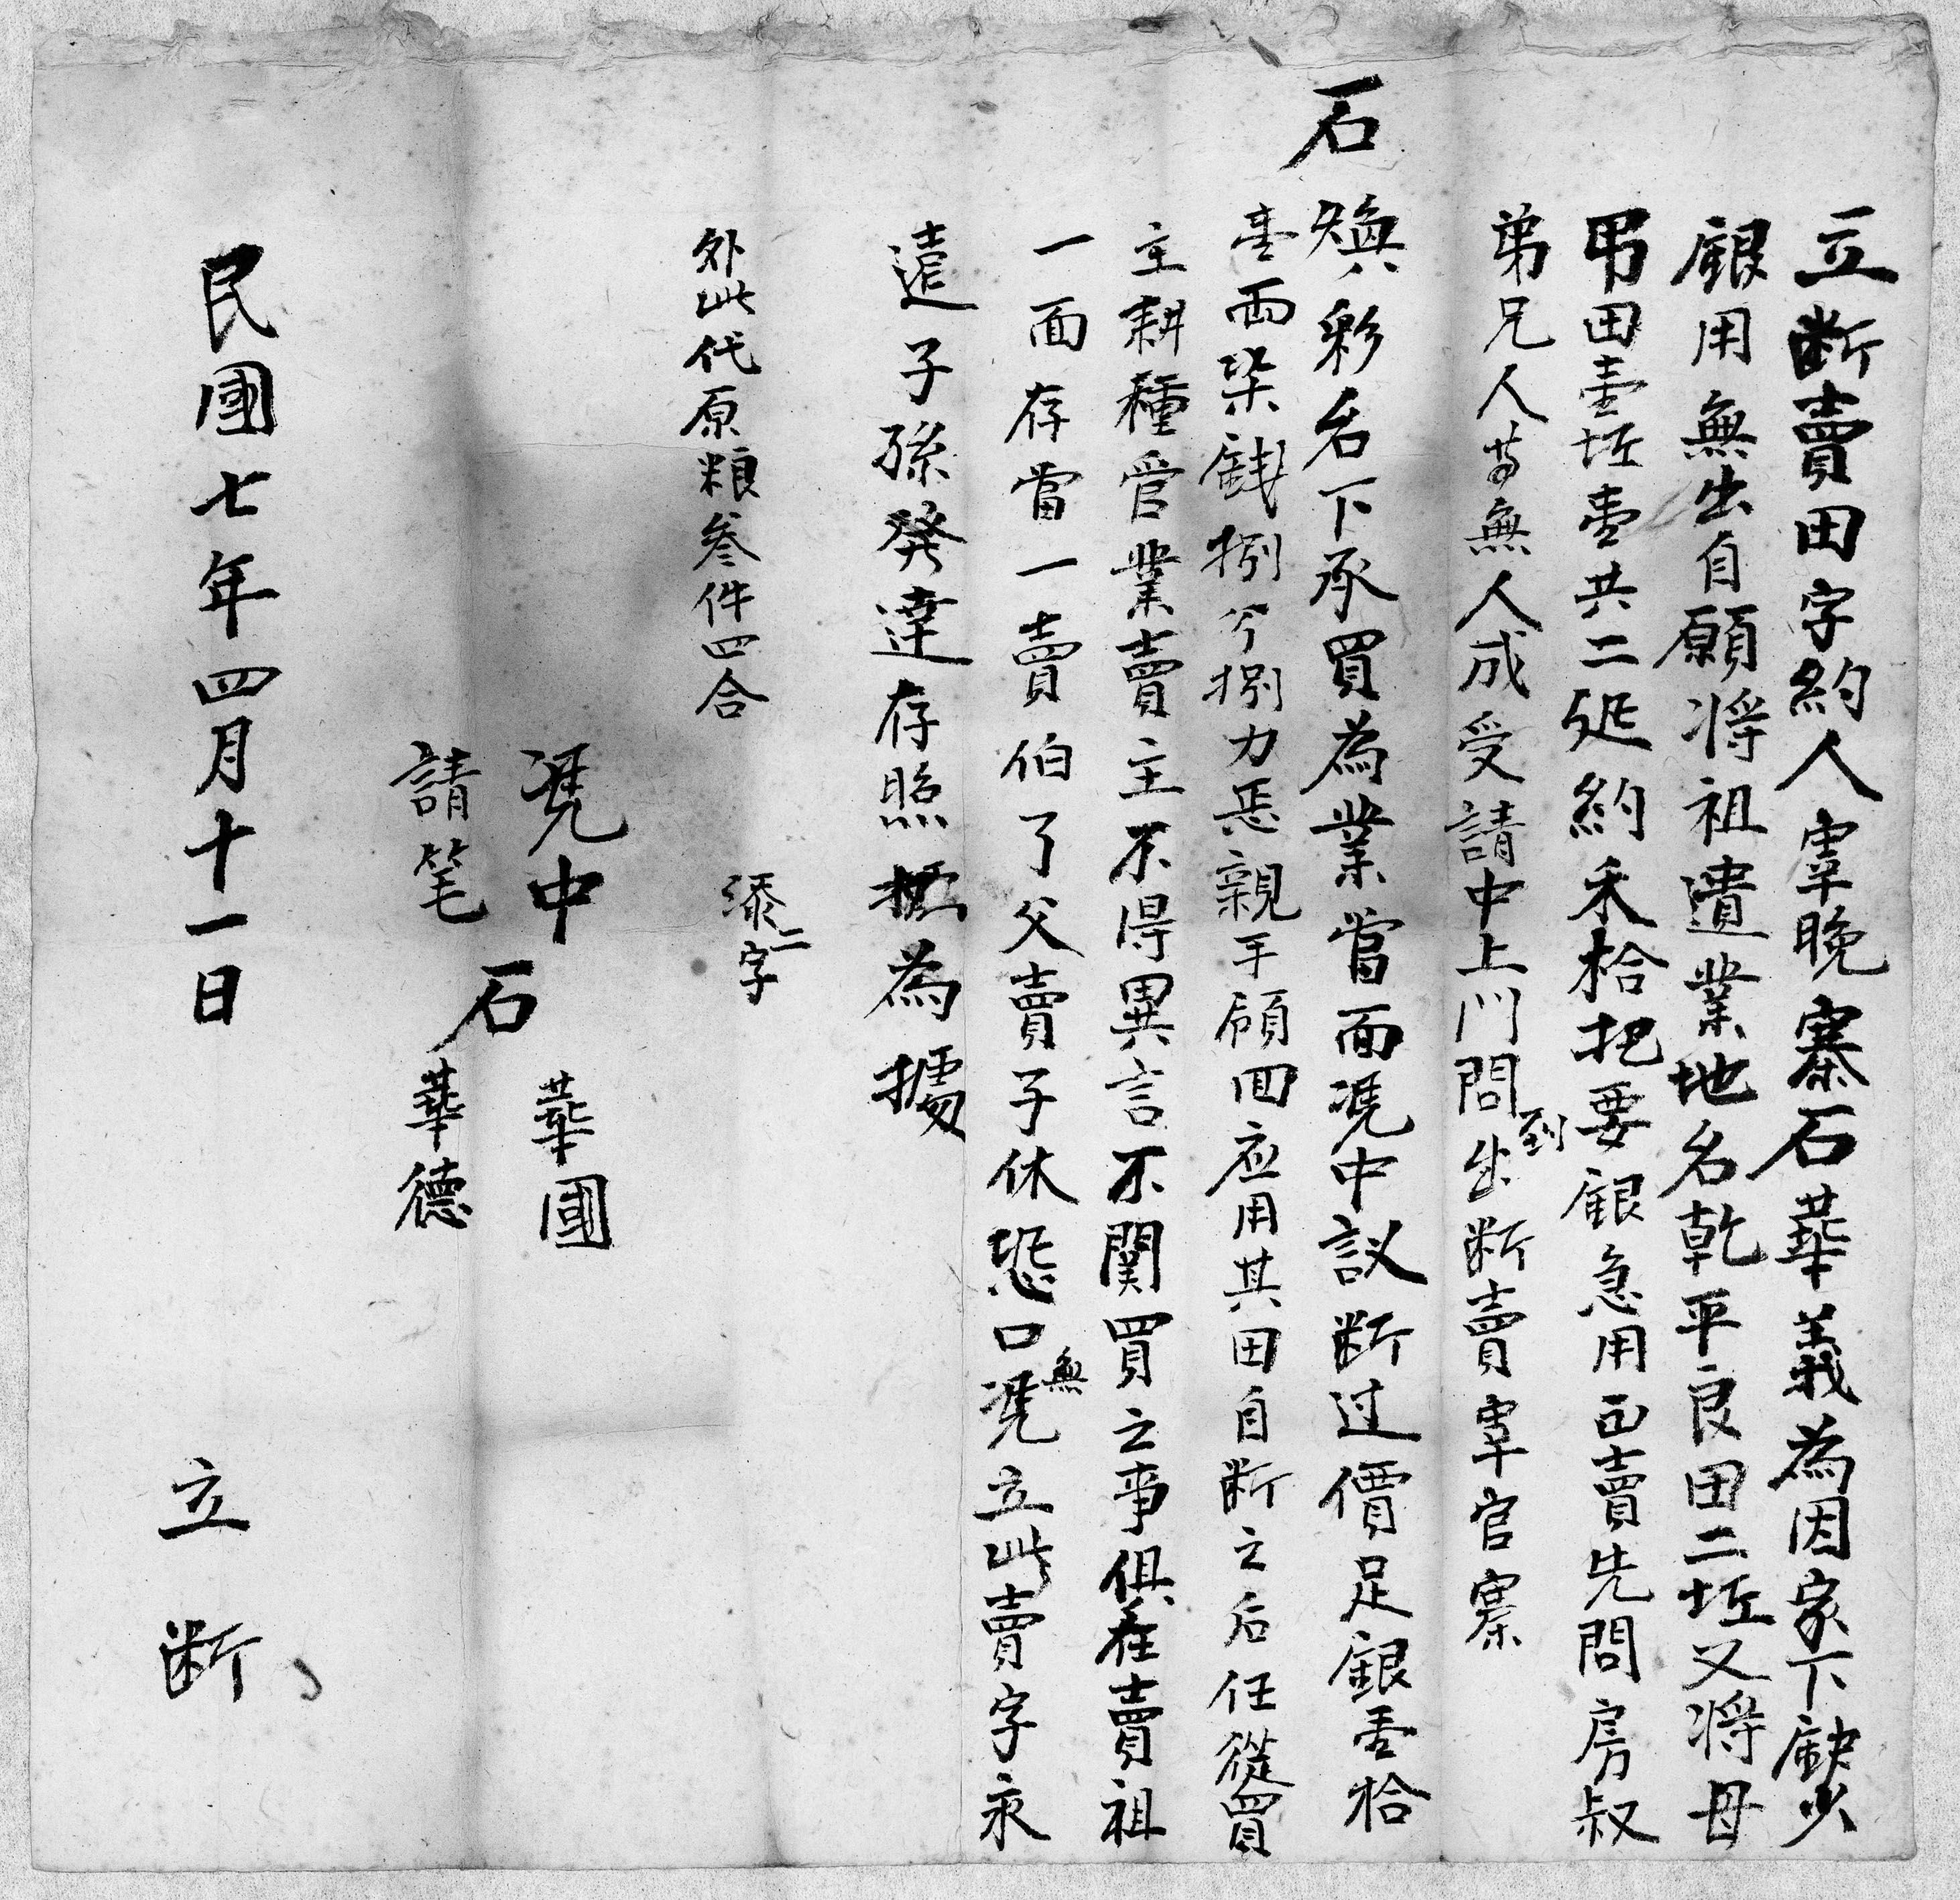 立断賣田字約人辜晚寨石華義為因家下缺少
銀用無出自願将祖遺業地名乾平良田二坵又将母
弔田壹坵壹共二処約禾拾把要銀急用正賣先問房叔
弟兄人等無人成受請中上門問到出断賣辜官寨
石煥彩名下承買為業當面凴中議断过價足銀壹拾
壹両柒錢捌分捌力悉親手領回应用其田自断之后任從買
主耕種管業賣主不得異言不関買之事俱在賣祖
一面存當一賣伯了父賣子休恐口無凴立此賣字永
遠子孫發達存照㧣為據
外此代原粮叁件四合
添二字
凴中 石華國
請笔 石華德
民國七年四月十一日 立断